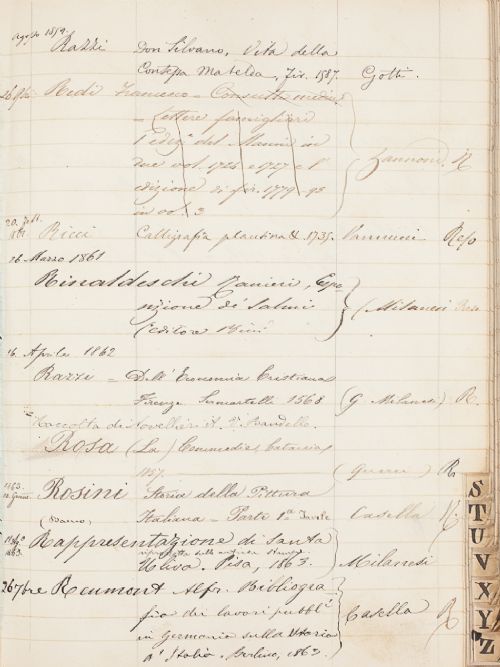 Agosto 1859.
Razzi Don Silvano, Vita della
Contessa Matelda, Fir. 1587. Gotti
Redi Francesco = Consulti medici
= Lettere famigliari
1ª ediz. del Manni in
due vol. 1724 e 1727 e l'
edizione di fir. 1779-95
in vol. 3 Zannoni R
20. febb.
1861 Ricci Calligrafia plautina & 1735. Vannucci Reso
26 Marzo 1861
Rinaldeschi Ranieri, Espo
sizione di Salmi (Milanesi Reso
(editore
16 Aprile 1862
Razzi = Dell' Economia Cristiana
Firenze Sermartelli 1568 (G. Milanesi) R.
Raccolta di novellieri
Rosa (La) Commedia, Catania
(Guerri) R
1863.
Rosini Storia della Pittura
Italiana = Parte 1ª Casella R
1863. Rappresentazione di Santa
Uliva. Pisa, 1863. Milanesi
26 7bre Reumont Alfr. Bibliogra
fia dei lavori pubbl.
in Germania sulla Storia Casella R
d'Italia. Berlino, 1863.
S
T
U
V
X
Y
Z